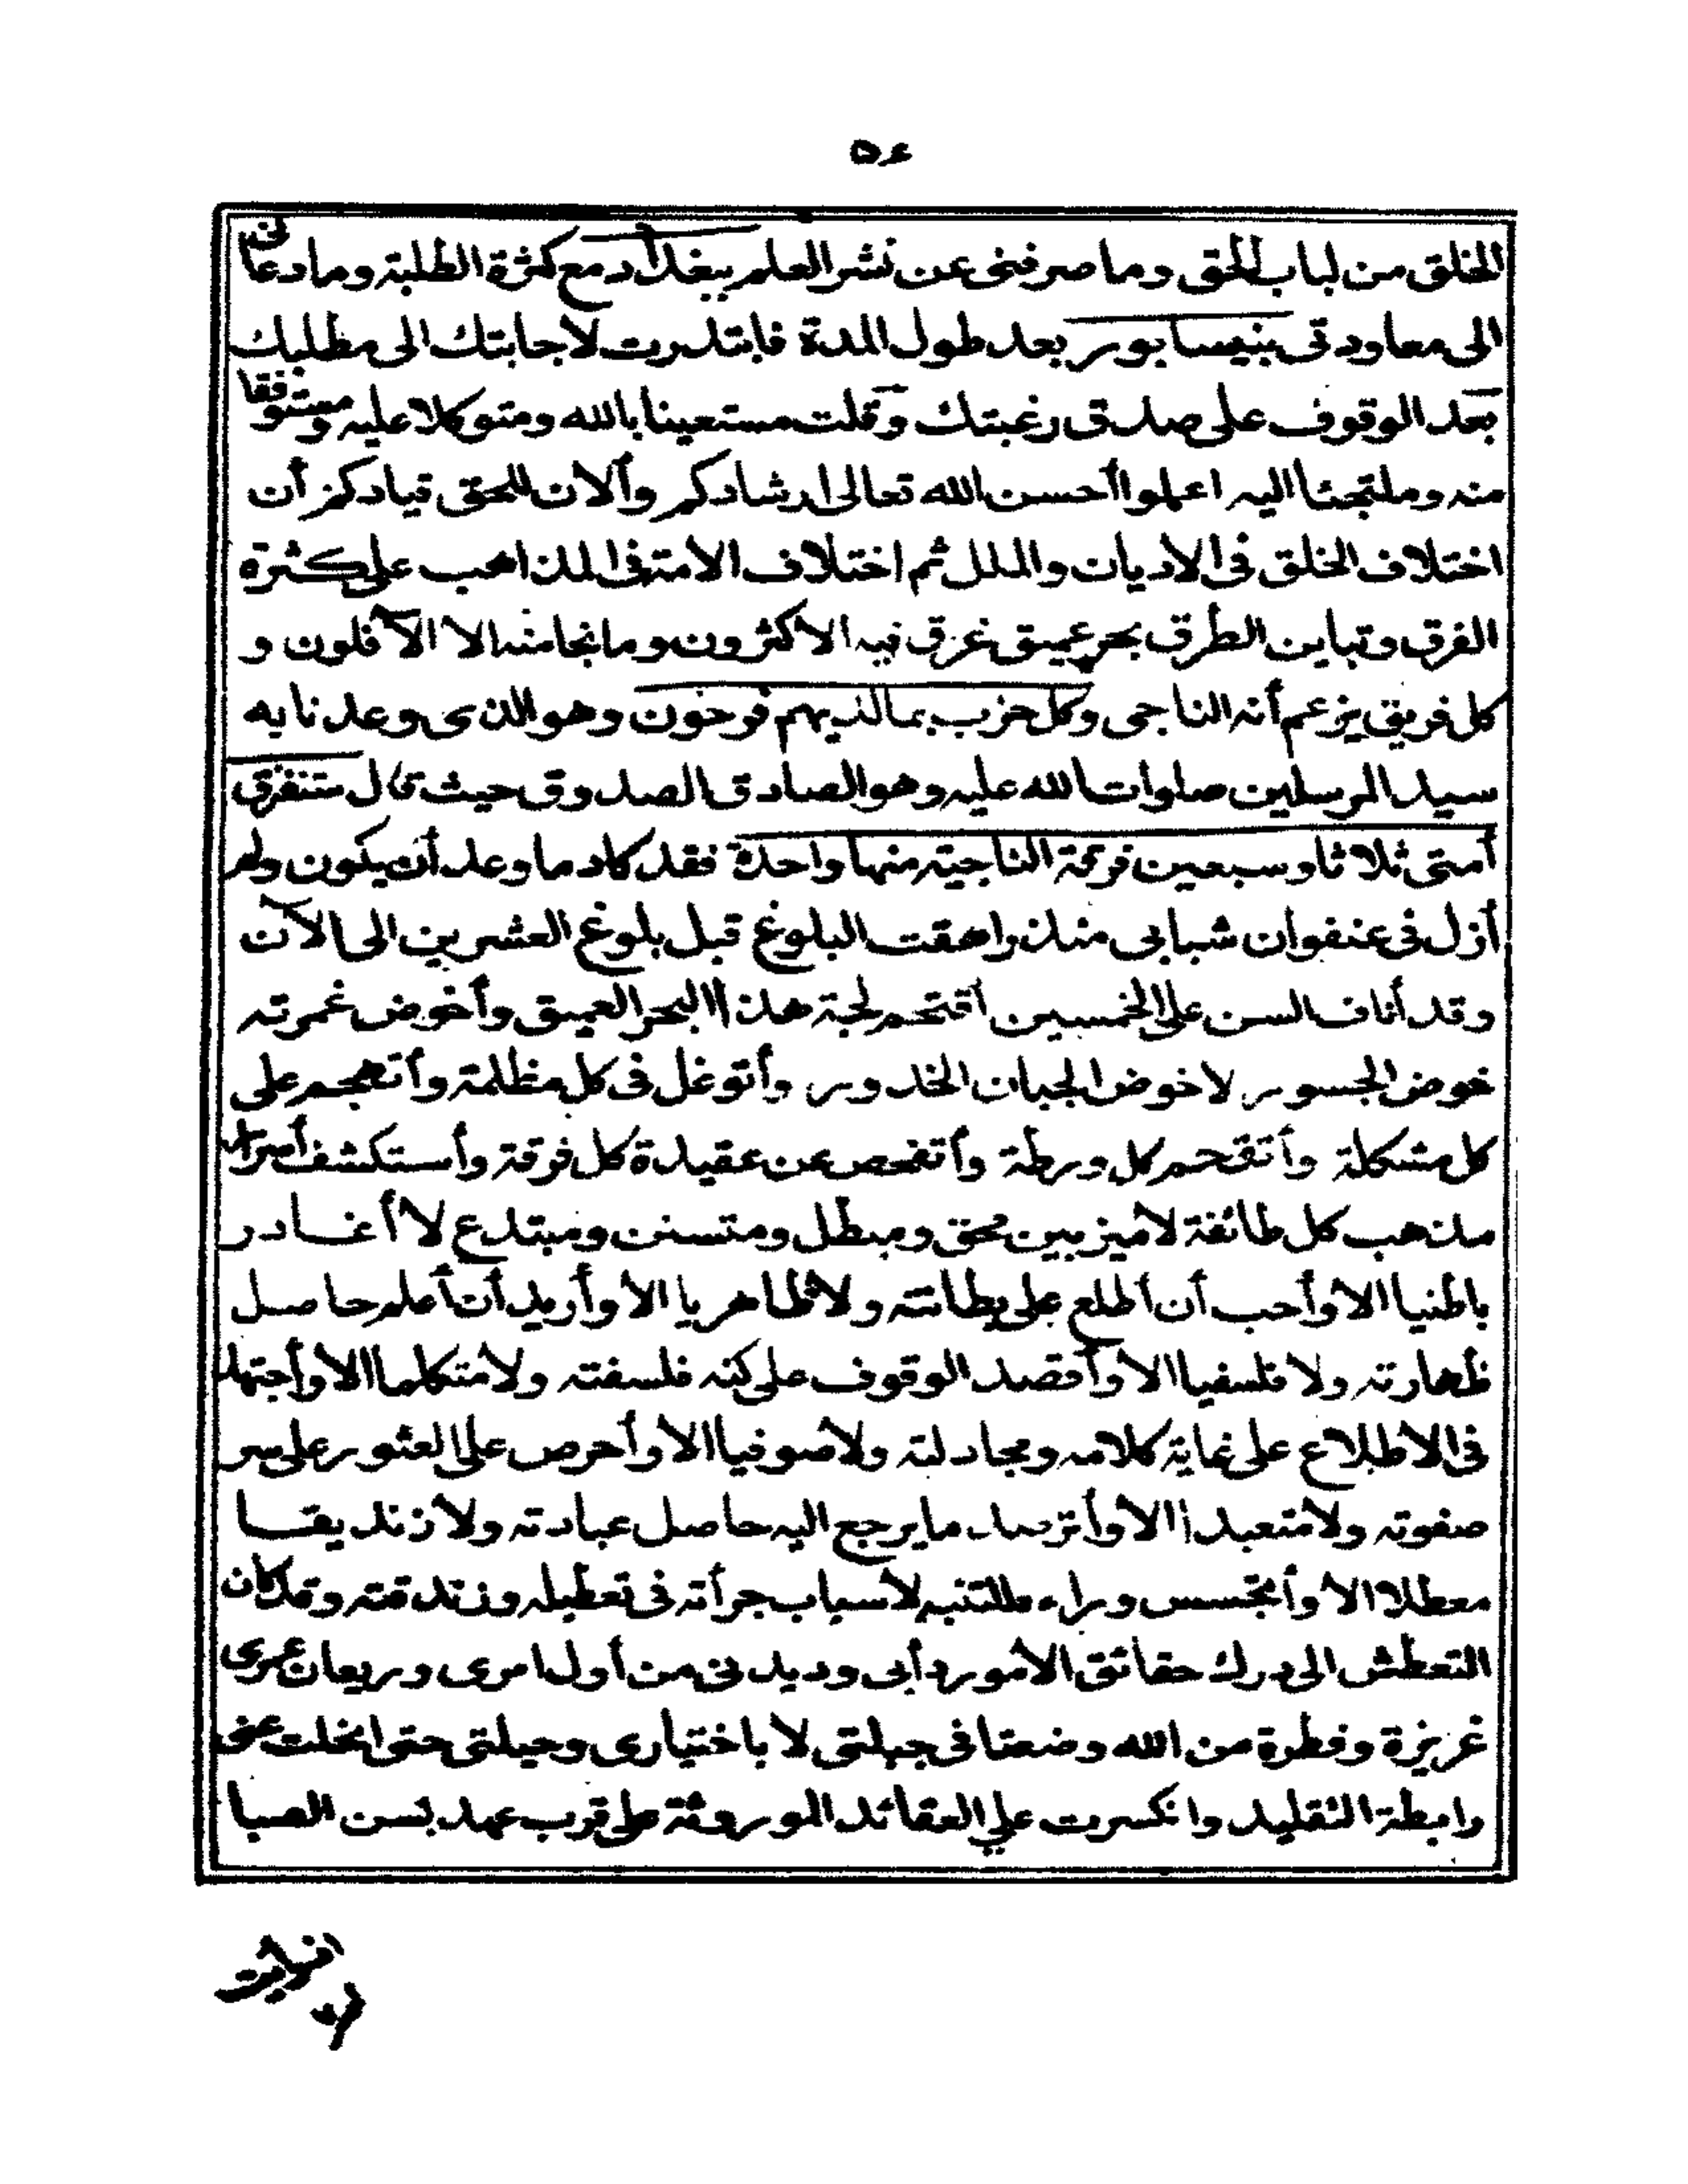 ٥٤
الخلق من لباب الحق وما صرفنى عن نشر العلم ببغداد مع كثرة الطلبة وما دعانى
الى معاودتى بنيسابور بعد طول المدة فابتدرت لاجابتك الى مطلبك
بعد الوقوف على صدق رغبتك وقلت مستعينا بالله ومتوكلا عليه ومستوفقا
منه وملتجئا اليه اعلموا أحسن الله تعالى ارشادكم وألان للحق قيادكم أن
اختلاف الخلق فى الاديان والملل ثم اختلاف الامة فى المذاهب على كثرة
الفرق وتباين الطرق بحر عميق غرق فيه الاكثرون وما نجا منه الا الاقلون و
كل فريق يزعم أنه الناجى وكل حزب بما لديهم فرحون وهو الذى وعدنا به
سيد المرسلين صلوات الله عليه وهو الصادق الصدوق حيث قال ستفترق
أمتى ثلاثا وسبعين فرقة الناجية منها واحدة فقد كاد ما وعد أن يكون ولم
أزل فى عنفوان شبابى منذ راهقت البلوغ قبل بلوغ العشرين الى الآن
وقد أناف السن على الخمسين أقتحم لجة هذا البحر العميق وأخوض غمرته
خوض الجسور لا خوض الجبان الخدور وأتوغل فى كل مظلمة وأتهجم على
كل مشكلة وأتقحم كل ورطة وأتفحص عن عقيدة كل فرقة وأستكشف أسرار
مذهب كل طائفة لأميز بين محق ومبطل ومتسنن ومبتدع لا أغادر
باطنيا الا وأحب أن أطلع على بطانته ولا ظاهريا الا وأريد أن أعلم حاصل
ظهارته ولا فلسفيا الا وأقصد الوقوف على كنه فلسفته ولا متكلما الا وأجتهد
فى الاطلاع على غاية كلامه ومجادلته ولا صوفيا الا وأحرص على العثور على سر
صفوته ولا متعبدا الا وأترصد ما يرجع اليه حاصل عبادته ولا زنديقا
معطلا الا وأتجسس وراءه للتنبه لأسباب جرأته فى تعطيله وزندقته وقد كان
التعطش الى درك حقائق الأمور دأبى وديدنى من أول امرى وريعان عمرى
غريزة وفطرة من الله وضعتا فى جبلتى لا باختيارى وحيلتى حتى انحلت عنى
رابطة التقليد وانكسرت علي العقائد الموروثة على قرب عهد بسن الصبا